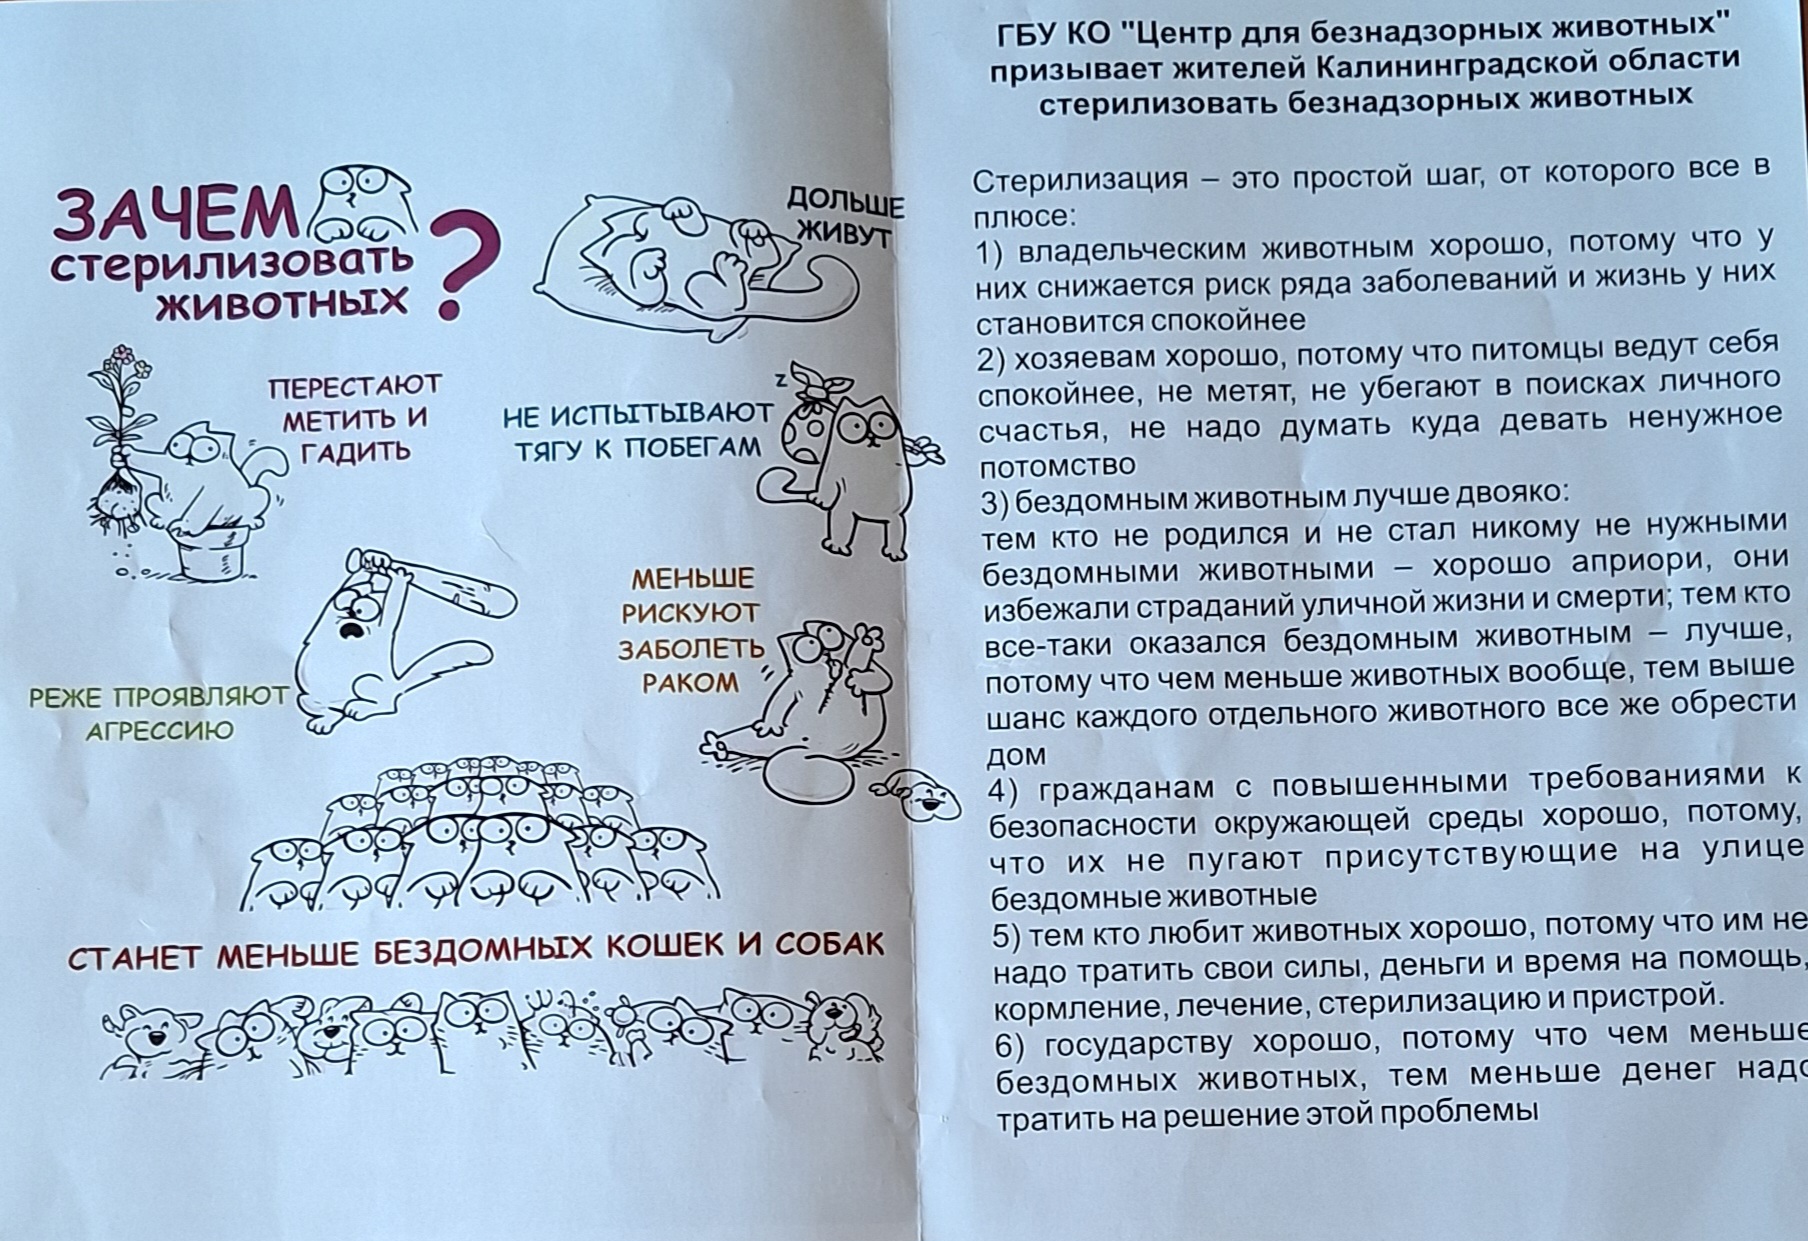 ЗАЧЕМ
стерилизовать
животных
?
ДОЛЬШЕ
ЖИВУТ
ПЕРЕСТАЮТ
МЕТИТЬ И
ГАДИТЬ
НЕ ИСПЫТЫВАЮТ
ТЯГУ К ПОБЕГАМ
z
МЕНЬШЕ
РИСКУЮТ
ЗАБОЛЕТЬ
РАКОМ
РЕЖЕ ПРОЯВЛЯЮТ
АГРЕССИЮ
СТАНЕТ МЕНЬШЕ БЕЗДОМНЫХ КОШЕК И СОБАК
ГБУ КО "Центр для безнадзорных животных"
призывает жителей Калининградской области
стерилизовать безнадзорных животных
Стерилизация – это простой шаг, от которого все в
плюсе:
1) владельческим животным хорошо, потому что у
них снижается риск ряда заболеваний и жизнь у них
становится спокойнее
2) хозяевам хорошо, потому что питомцы ведут себя
спокойнее, не метят, не убегают в поисках личного
счастья, не надо думать куда девать ненужное
потомство
3) бездомным животным лучше двояко:
тем кто не родился и не стал никому не нужными
бездомными животными – хорошо априори, они
избежали страданий уличной жизни и смерти; тем кто
все-таки оказался бездомным животным – лучше,
потому что чем меньше животных вообще, тем выше
шанс каждого отдельного животного все же обрести
дом
4) гражданам с повышенными требованиями к
безопасности окружающей среды хорошо, потому,
что их не пугают присутствующие на улице
бездомные животные
5) тем кто любит животных хорошо, потому что им не
надо тратить свои силы, деньги и время на помощь,
кормление, лечение, стерилизацию и пристрой.
6) государству хорошо, потому что чем меньше
бездомных животных, тем меньше денег надо
тратить на решение этой проблемы